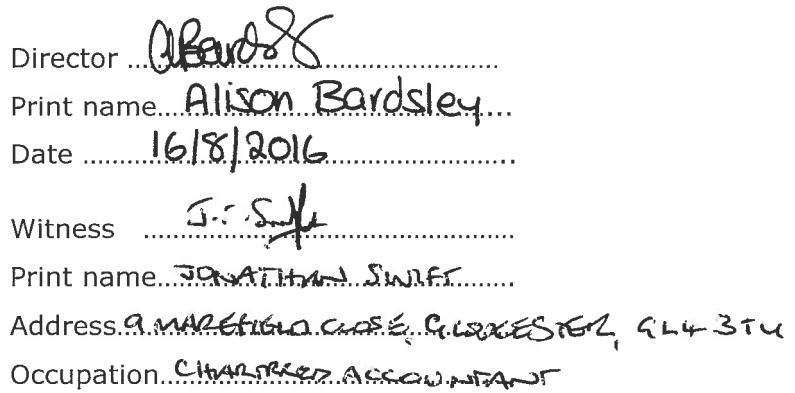 Director
Print name Alison Bardsley
Date 16/8/2016
Witness J. S. Swift
Print name JONATHAN SWIFT
Address 9 MAREFIELD CLOSE, GLOUCESTER, GL4 3TU
Occupation CHARTERED ACCOUNTANT